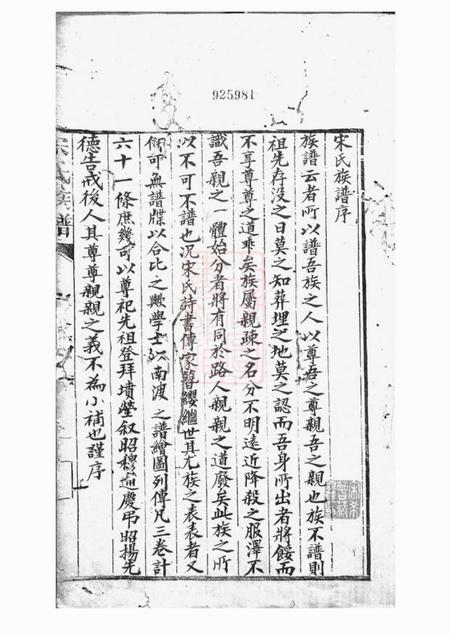 925981
宋氏族譜序
族譜云者所以譜吾族之人以尊吾之尊親吾之親也族不譜則
祖先存没之日莫之知葬埋之地莫之認而吾身所出者將餒而
不享尊尊之道乖矣族屬親疎之名分不明遠近降殺之服澤不
識吾親之一體始分者將有同於路人親親之道廢矣此族之所
以不可不譜也况宋氏詩書傳家簪纓繼世其尤族之表表者又
可無譜牒以合比之歟學士以南渡之譜繪圖列傳凡三卷計
六十一條庶幾可以尊祀先祖登拜墳塋叙昭穆通慶弔昭揚先
德告戒後人其尊尊親親之義不為小補也謹序
氏族譜